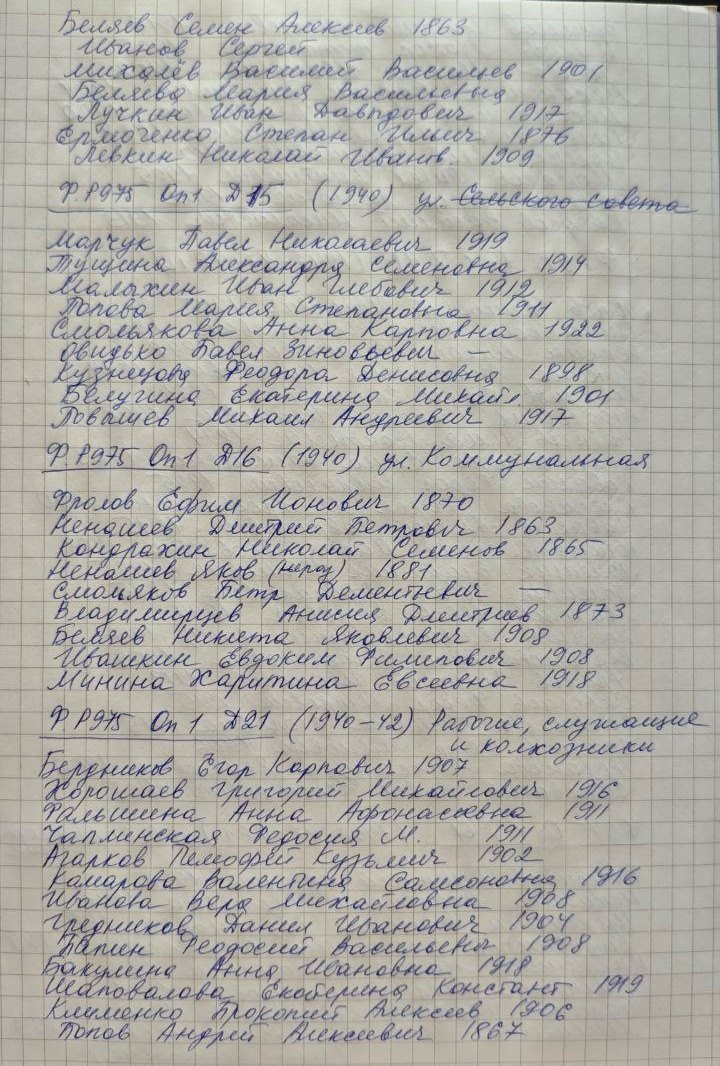 Беляев Семен Алексеев 1863
Иванов Сергей
Михалёв Василий Васильев 1901
Беляева Мария Васильевна
Лучкин Иван Давыдович 1917
Ермоченко Степан Ильич 1876
Левкин Николай Иванов. 1909
Ф.Р975 Оп1 Д15 (1940) ул. Сельского совета
Марчук Павел Николаевич 1919
Тущина Александра Семеновна 1914
Малыхин Иван Глебович 1912
Попова Мария Степановна 1911
Смольякова Анна Карповна 1922
Овидько Павел Зиновьевич —
Кузнецова Феодора Денисовна 1898
Белугина Екатерина Михайл 1901
Повышев Михаил Андреевич 1917
Ф.Р975 Оп1 Д16 (1940) ул. Коммунальная
Фролов Ефим Ионович 1870
Ненашев Дмитрий Петрович 1863
Кондрахин Николай Семенов 1865
Ненашев Яков 1881
Смольяков Петр Дементьевич —
Владимирцев Анисия Дмитриев 1873
Беляев Никита Яковлевич 1908
Ивашкин Евдоким Филипович 1908
Минина Харитина Евсеевна 1918
Ф.Р975 Оп1 Д21 (1940-42) Рабочие, служащие
и колхозники
Бердников Егор Карпович 1907
Хорошаев Григорий Михайлович 1916
Фальшина Анна Афонасьевна 1911
Чаплинская Федосия М. 1911
Агарков Темофей Кузьмич 1902
Камарова Валентина Самсоновна 1916
Иванова Вера Михайловна 1908
Гредников Данил Иванович 1904
Папин Феодосий Васильевич 1908
Бакулина Анна Ивановна 1918
Шаповалова Екатерина Констант 1919
Клименко Прокопий Алексеев 1906
Попов Андрей Алексеевич 1867